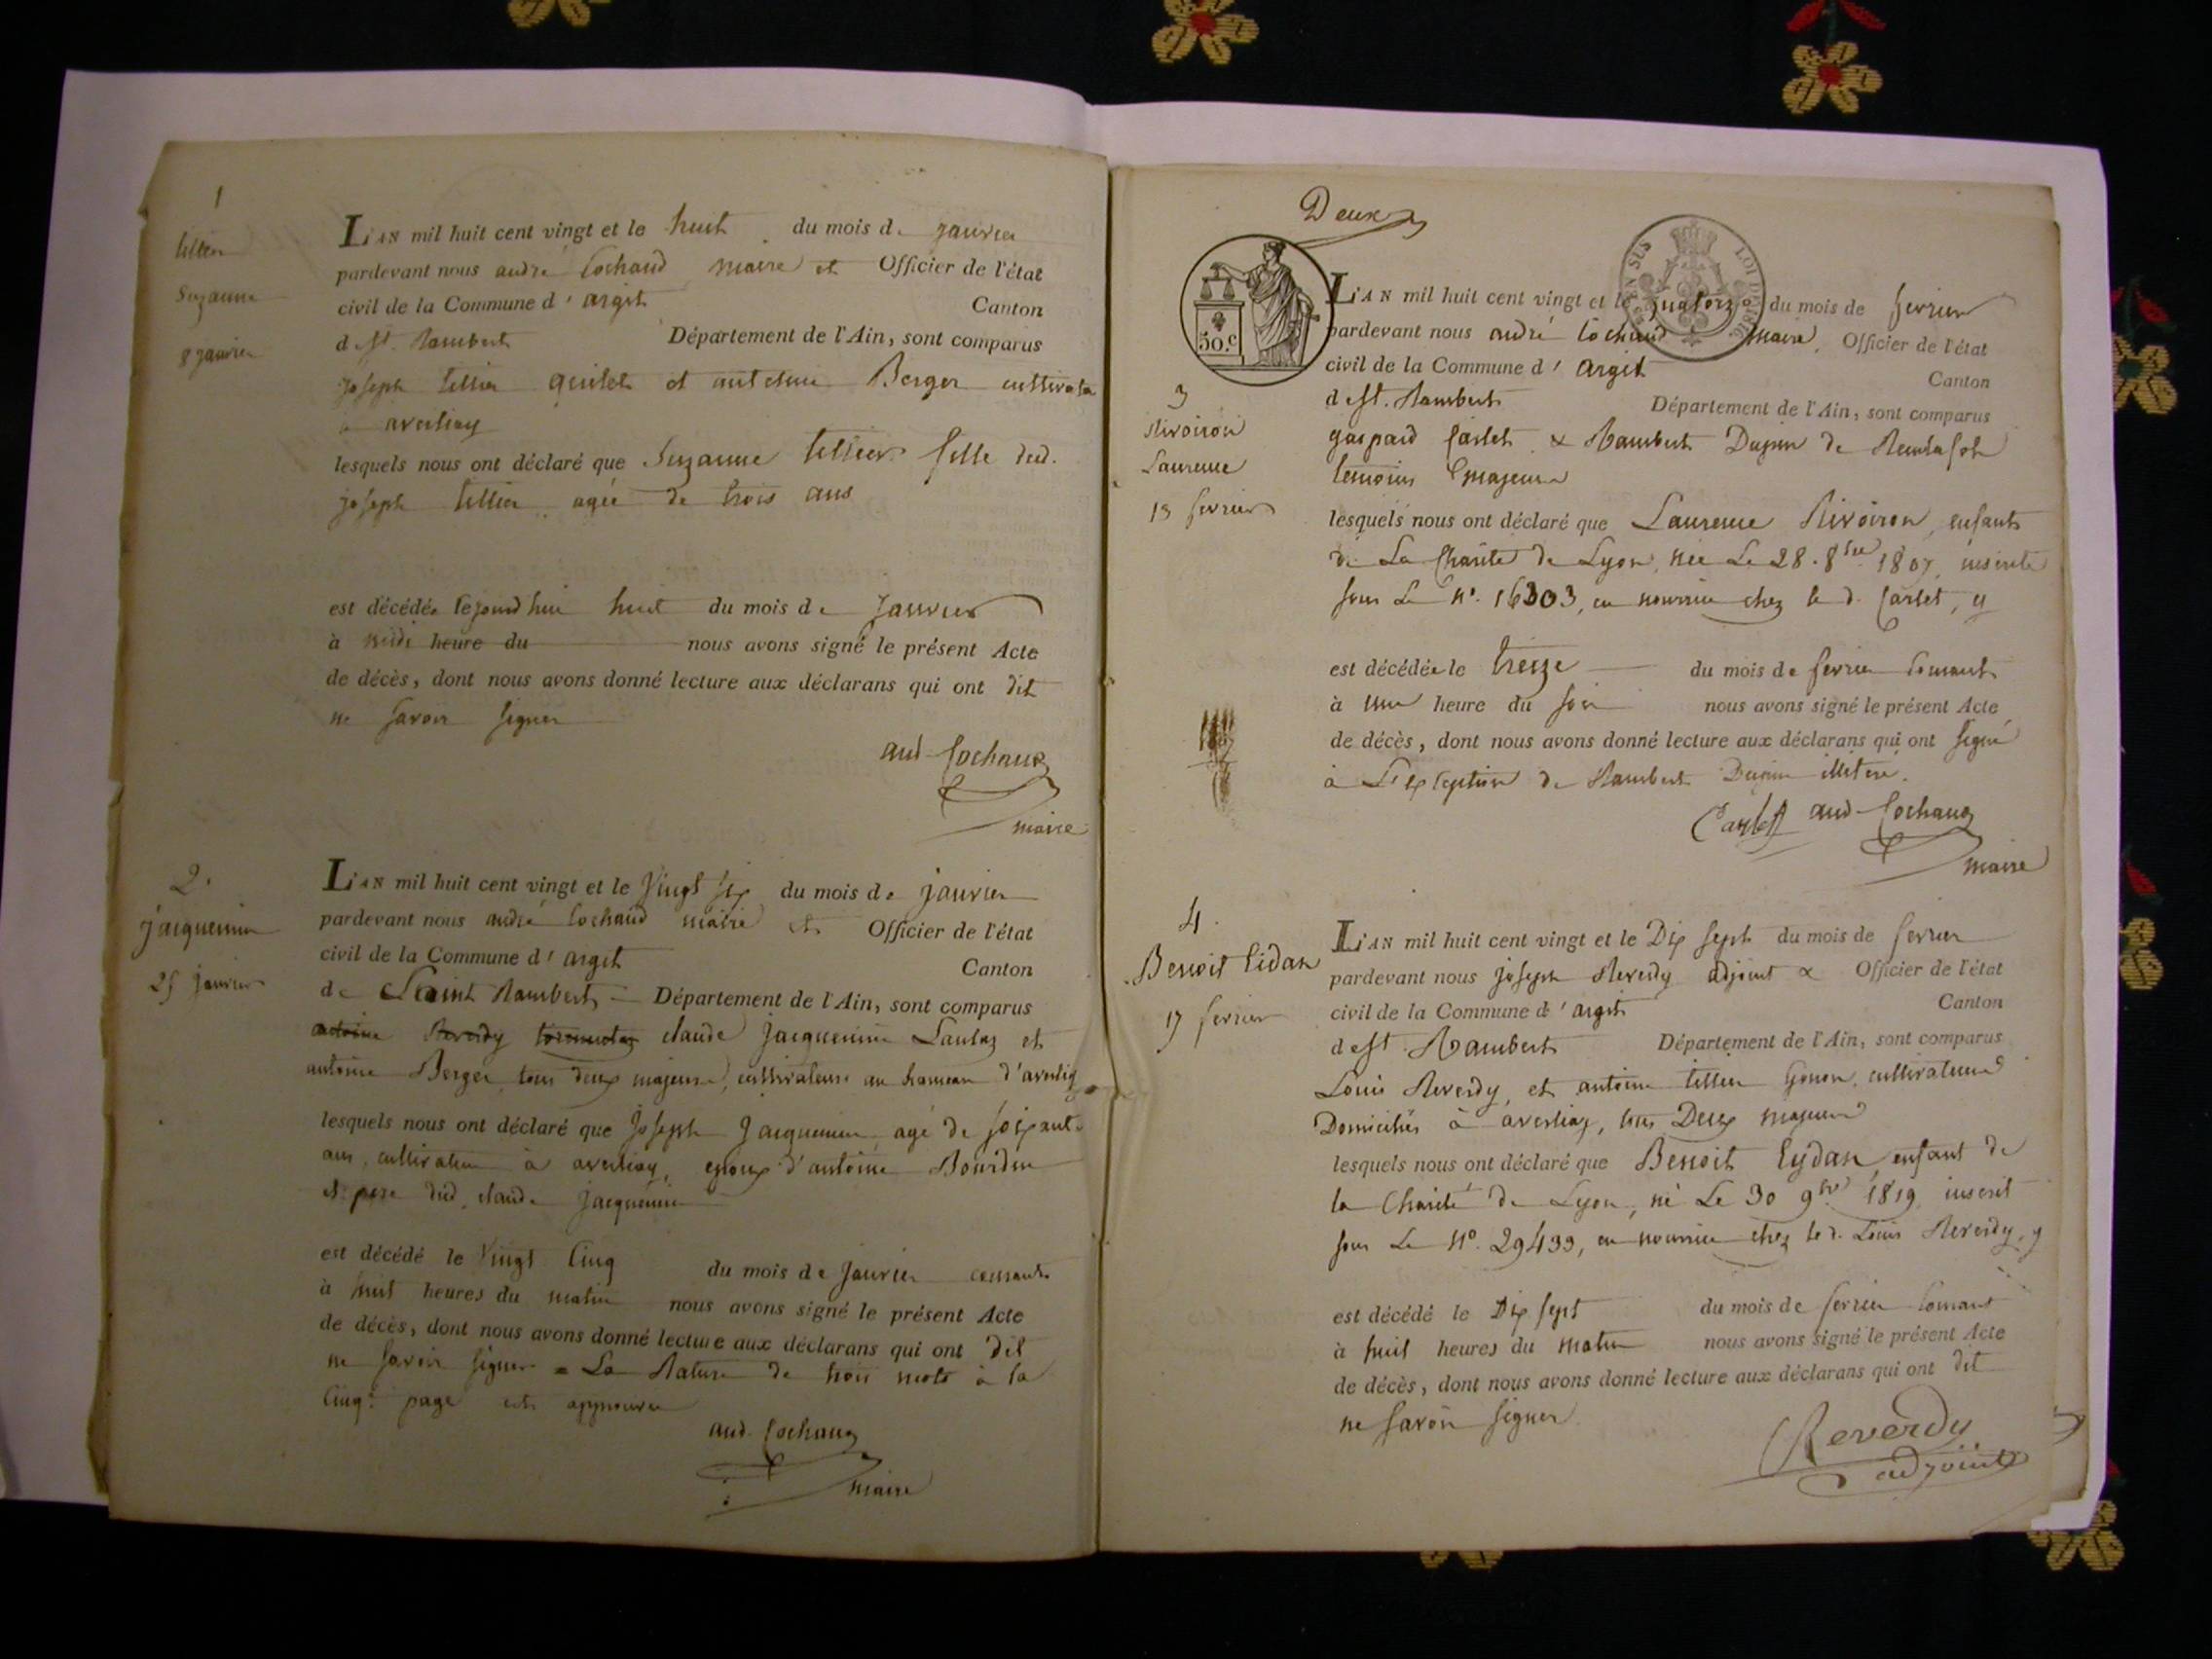 1
tillier
Suzanne
8 janvier
L'AN mil huit cent vingt et le huit du mois de janvier
pardevant nous andré Cochaud maire et Officier de l'état
civil de la Commune d'argit
Canton
de St. Rambert Département de l'Ain, sont comparus
joseph tillier et Berger
a averliaz
lesquels nous ont déclaré que Suzanne tillier fille dud.
joseph tillier agée de trois ans
est décédée huit du mois de janvier
à midi heure du nous avons signé le présent Acte
de décès, dont nous avons donné lecture aux déclarans qui ont dit
ne savoir signer
and Cochaud
maire
2.
jacquemin
25 janvier
L'AN mil huit cent vingt et le Vingt six du mois de janvier
pardevant nous andré Cochaud maire et Officier de l'état
civil de la Commune d'argit
Canton
de Saint Rambert Département de l'Ain, sont comparus
antoine Reverdy claude jacquemin et
antoine Berger tous deux majeurs, cultivateurs au hameau d'averliaz
lesquels nous ont déclaré que joseph jacquemin agé de soixante
ans, cultivateur à averliaz, epoux d'antoine Bourdin
et pere dud. claude jacquemin
est décédé le Vingt Cinq du mois de janvier courant
à huit heures du matin nous avons signé le présent Acte
de décès, dont nous avons donné lecture aux déclarans qui ont dit
ne savoir signer = La Rature de trois mots à la
Cinq.e page est approuvée
and. Cochaud
maire
Deux
50.c
EN SUS
LOI DE
L'AN mil huit cent vingt et le quatorze du mois de fevrier
pardevant nous andré Cochaud maire, Officier de l'état
civil de la Commune d'Argit
Canton
3
Rivoiron
Laurence
13 fevrier
de St. Rambert
Département de l'Ain, sont comparus
gaspard Carlet & Rambert Dupin de
temoins majeurs
lesquels nous ont déclaré que Laurence Rivoiron, enfant
de La Charité de Lyon, née Le 28. 8bre 1807, inscrite
sous Le n°. 16303, en nourrice chez le d. Carlet, y
est décédée le treize du mois de fevrier Courant
à une heure du soir nous avons signé le présent Acte
de décès, dont nous avons donné lecture aux déclarans qui ont signé
à L'exception de Rambert Dupin
Carlet and Cochaud
maire
4.
Benoit Eidan
17 fevrier
L'AN mil huit cent vingt et le Dix sept du mois de fevrier
pardevant nous joseph Reverdy adjoint & Officier de l'état
civil de la Commune d'argit
Canton
de St. Rambert
Département de l'Ain, sont comparus
Louis Reverdy, et antoine tillier Gonon, cultivateurs
Domiciliés à averliaz, tous Deux majeurs
lesquels nous ont déclaré que Benoit Eydan, enfant de
la Charité de Lyon, né Le 30 9bre 1819, inscrit
sous Le N°. 29433, en nourrice chez le d. Louis Reverdy, y
est décédé le Dix sept du mois de fevrier Courant
à huit heures du matin nous avons signé le présent Acte
de décès, dont nous avons donné lecture aux déclarans qui ont dit
ne savoir signer
Reverdy
adjoint